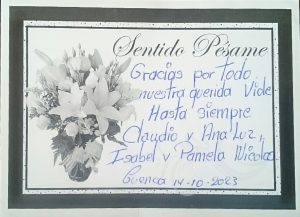 Sentido Pésame
Gracias por todo
nuestra querida Vide
Hasta siempre
Claudio y Ana Luz,
Isabel y Pamela Nicolas
Cuenca 14-10-2023